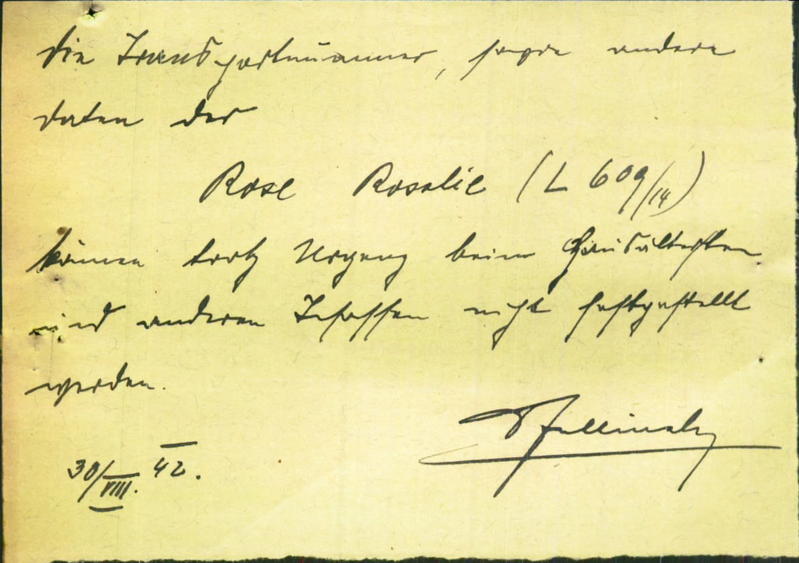 die Transportnummer, sowie andere
daten der
Rose Rosalie (L 609/14)
können trotz Urgenz beim Hausältesten
und anderen Insassen nicht festgestellt
werden.
30/VIII. 42.